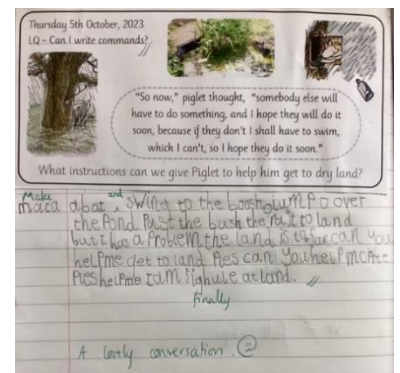 Thursday 5th October, 2023
LQ – Can I write commands?
"So now," piglet thought, "somebody else will
have to do something, and I hope they will do it
soon, because if they don't I shall have to swim,
which I can't, so I hope they do it soon."
What instructions can we give Piglet to help him get to dry land?
Make and
maca a bat swing to the boosh JUMP o over
the Pond Past the bush the nuxt to land
but it has a Problem the land is to far can you
help me get to land Ples can you help mc
Ples help me I am at land.
finally
A lovely conversation.